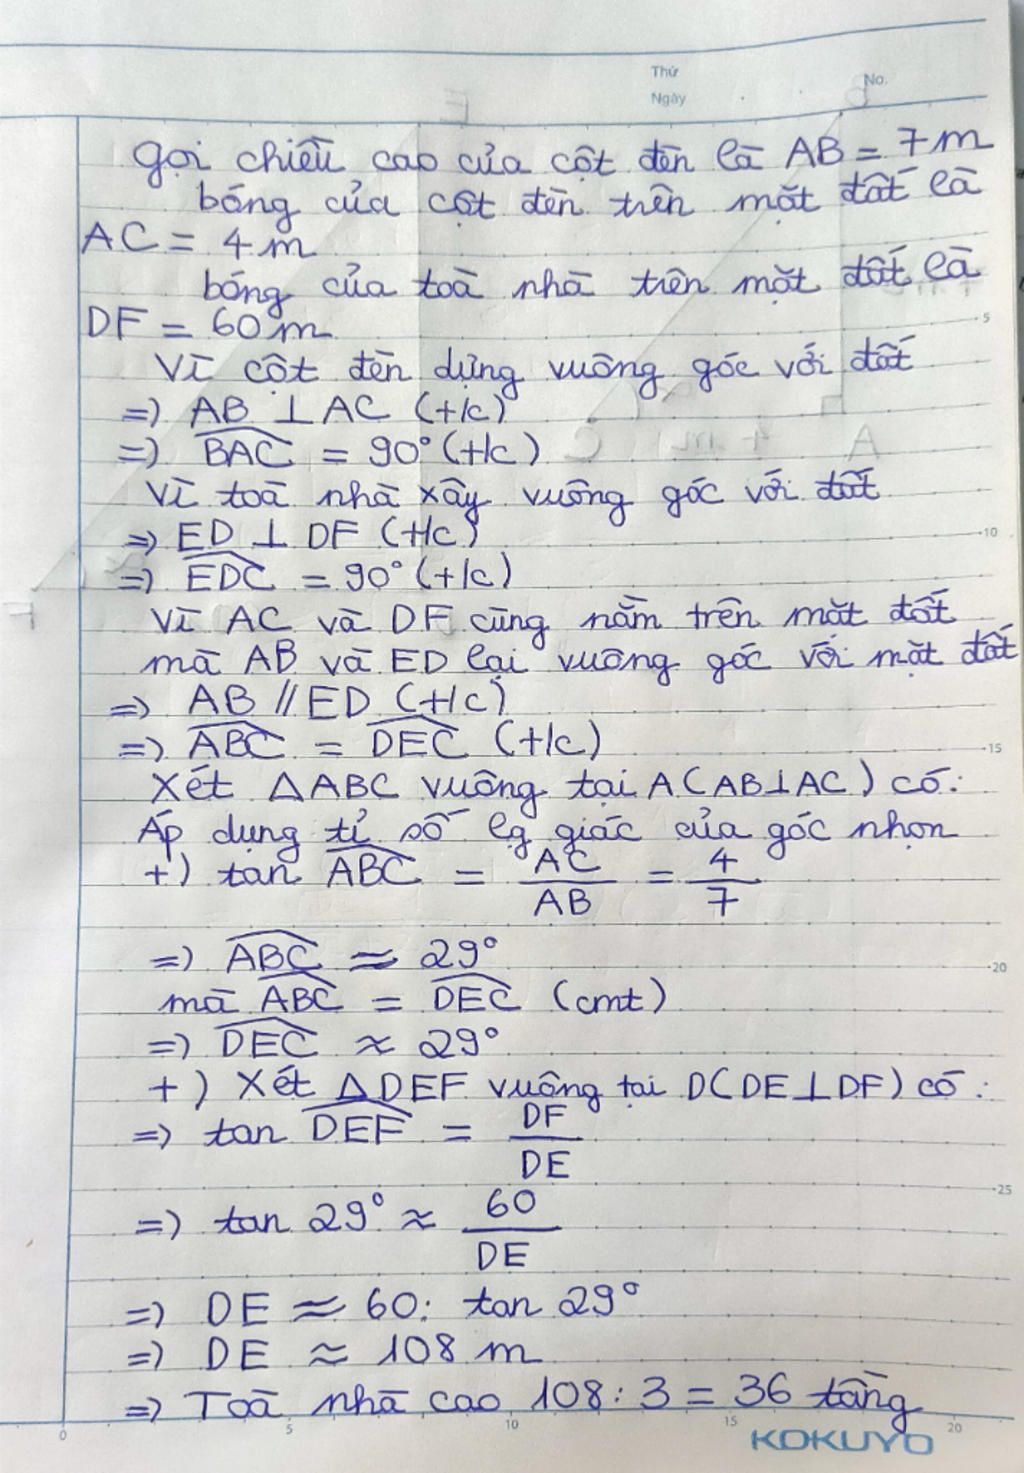 Thứ
Ngày
No.
gọi chiều cao của cột đèn là AB = 7m
bóng của cột đèn trên mặt đất là
AC = 4m
bóng của toà nhà trên mặt đất là
DF = 60m
Vì cột đèn dựng vuông góc với đất
=) AB ⊥ AC (t/c)
=) \widehat{BAC} = 90° (t/c)
Vì toà nhà xây vuông góc với đất
=) ED ⊥ DF (t/c)
=) \widehat{EDC} = 90° (t/c)
Vì AC và DF cùng nằm trên mặt đất
mà AB và ED lại vuông góc với mặt đất
=) AB // ED (t/c)
=) \widehat{ABC} = \widehat{DEC} (t/c)
Xét △ABC vuông tại A(AB⊥AC) có:
Áp dụng tỉ số lg giác của góc nhọn
+) tan \widehat{ABC} = \frac{AC}{AB} = \frac{4}{7}
=) \widehat{ABC} ≈ 29°
mà \widehat{ABC} = \widehat{DEC} (cmt)
=) \widehat{DEC} ≈ 29°
+) Xét △DEF vuông tại D(DE⊥DF) có:
=) tan \widehat{DEF} = \frac{DF}{DE}
=) tan 29° ≈ \frac{60}{DE}
=) DE ≈ 60: tan 29°
=) DE ≈ 108 m
=) Toà nhà cao 108 : 3 = 36 tầng
5
10
15
20
25
0 5 10 15 20
KOKUYO